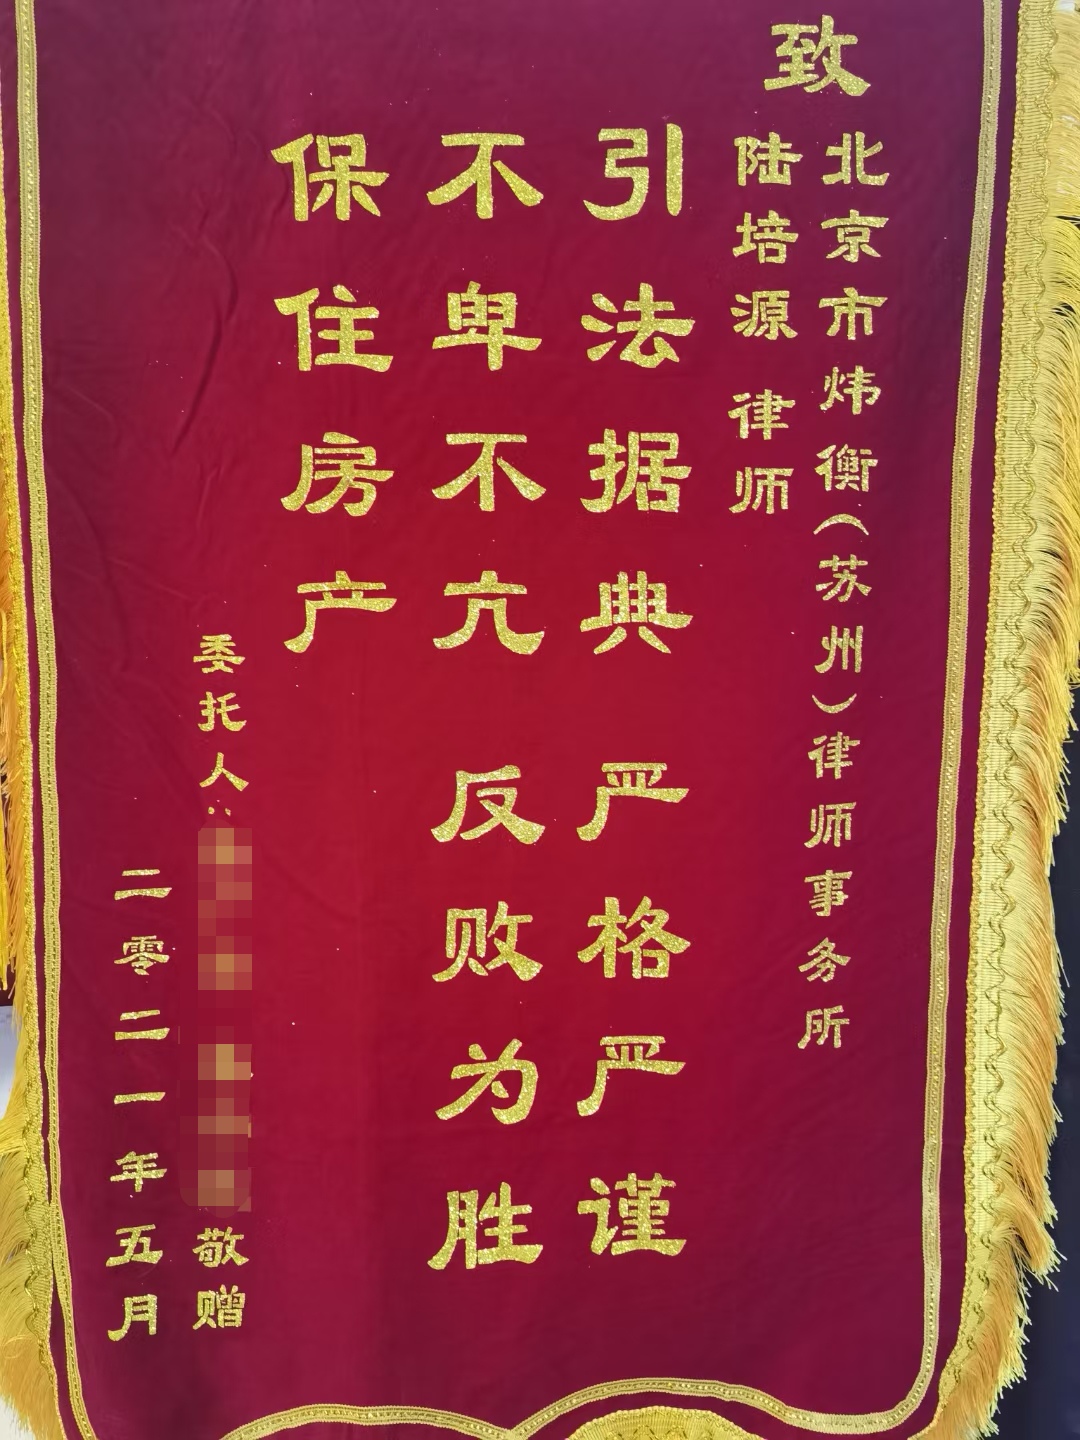 致
北京市炜衡（苏州）律师事务所
陆培源 律师
引法据典 严格严谨
不卑不亢 反败为胜
保住房产
委托人：
敬赠
二零二一年五月